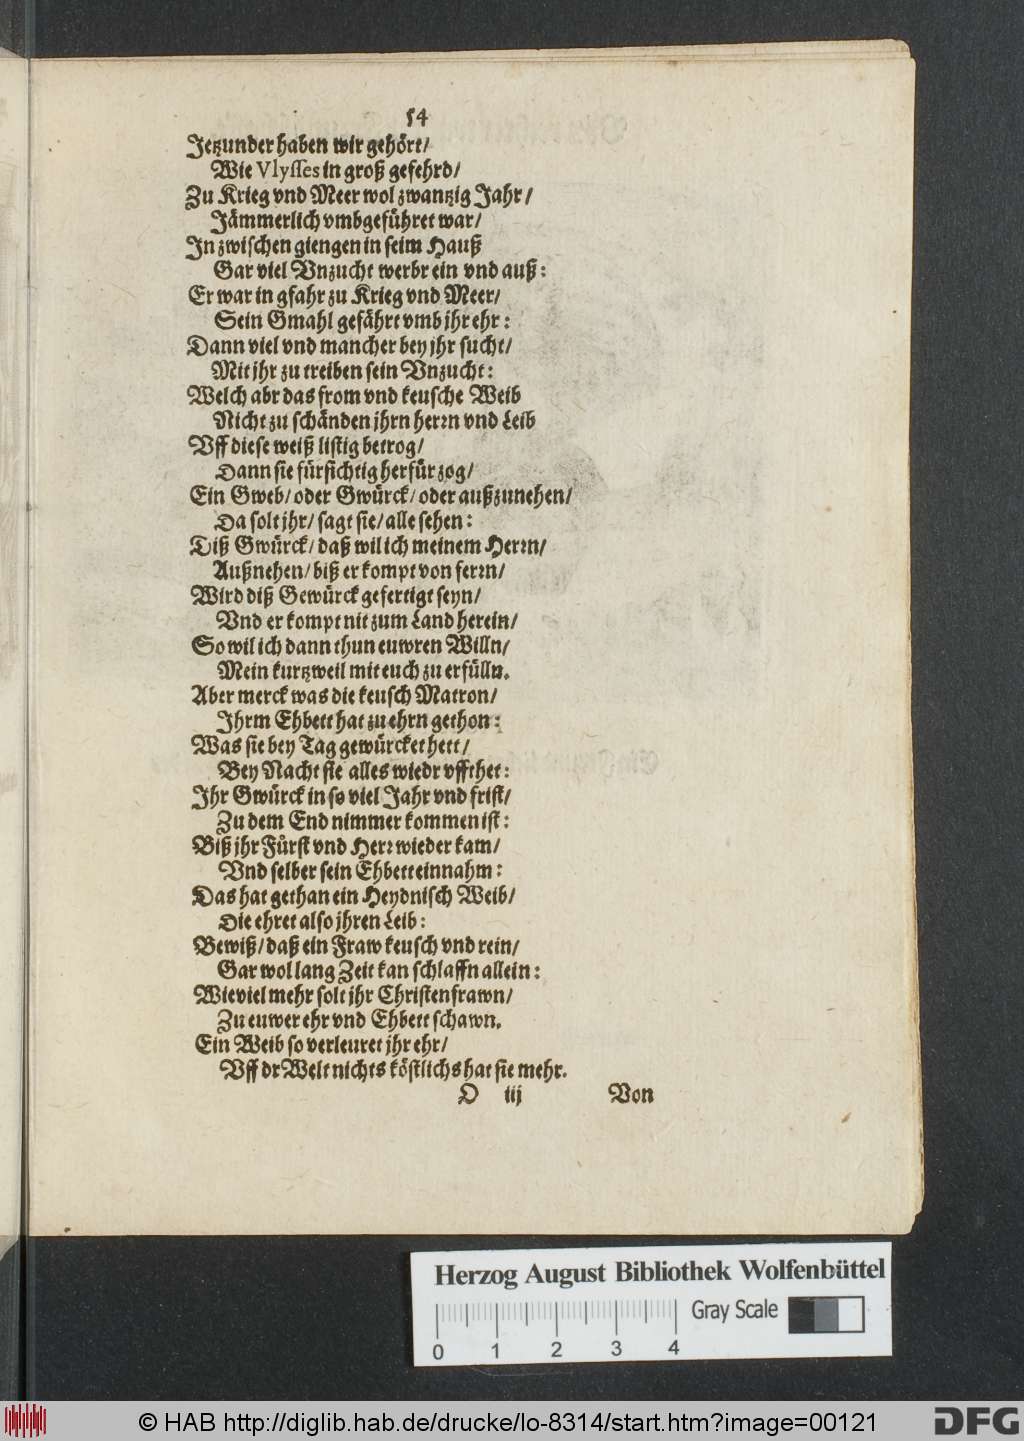 54
Jetzunder haben wir gehört/
Wie Vlyſſes in groß gefehrd/
Zu Krieg vnd Meer wol zwantzig Jahr/
Jämmerlich vmbgeführet war/
In zwiſchen giengen in ſeim Hauß
Gar viel Vnzucht werbr ein vnd auß:
Er war in gfahr zu Krieg vnd Meer/
Sein Gmahl gefährt vmb jhr ehr:
Dann viel vnd mancher bey jhr ſucht/
Mit jhr zu treiben ſein Vnzucht:
Welch abr das from vnd keuſche Weib
Nicht zu ſchänden jhrn herꝛn vnd Leib
Vff dieſe weiß liſtig betrog/
Dann ſie fürſichtig herfür zog/
Ein Gweb/ oder Gwürck/ oder außzunehen/
Da ſolt jhr/ ſagt ſie/ alle ſehen:
Diß Gwürck/ daß wil ich meinem Herꝛn/
Außnehen/ biß er kompt von ferꝛn/
Wird diß Gewürck gefertigt ſeyn/
Vnd er kompt nit zum Land herein/
So wil ich dann thun euwren Willn/
Mein kurtzweil mit euch zu erfülln.
Aber merck was die keuſch Matron/
Ihrm Ehbett hat zu ehrn gethon:
Was ſie bey Tag gewürcket hett/
Bey Nacht ſie alles wiedr vffthet:
Ihr Gwürck in ſo viel Jahr vnd friſt/
Zu dem End nimmer kommen iſt:
Biß jhr Fürſt vnd Herꝛ wieder kam/
Vnd ſelber ſein Ehbett einnahm:
Das hat gethan ein Heydniſch Weib/
Die ehret alſo jhren Leib:
Bewiß/ daß ein Fraw keuſch vnd rein/
Gar wol lang Zeit kan ſchlaffn allein:
Wie viel mehr ſolt jhr Chriſtenfrawn/
Zu euwer ehr vnd Ehbett ſchawn.
Ein Weib ſo verleuret jhr ehr/
Vff dr Welt nichts köſtlichs hat ſie mehr.
O iij Von
Herzog August Bibliothek Wolfenbüttel
Gray Scale
0 1 2 3 4
© HAB http://diglib.hab.de/drucke/lo-8314/start.htm?image=00121
DFG